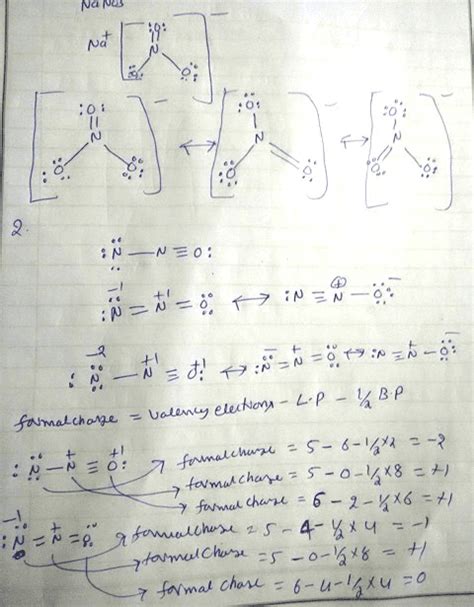 NaNO3
Na+ [:O: N :O: :O:]−
[:O: = N :O: :O:]− ↔ [:O: N = O:]− ↔ [:O: N :O: O:]−
2.
:N̈ — N ≡ O:
−1 +1
:N = N = O: ↔ :N ≡ N⊕ — O:−
−2 +1 +1
:N̈ — N ≡ O: ↔ :N− = N+ = O ↔ :N ≡ N+ — O:−
formal charge = Valency electrons – L.P – 1/2 B.P
:N̈ — N+ ≡ O+1: → formal charge = 5 – 6 – 1/2 × 2 = –2
→ formal charge = 5 – 0 – 1/2 × 8 = +1
→ formal charge = 6 – 2 – 1/2 × 6 = +1
−1 +
:N = N = O: → formal charge = 5 – 4 – 1/2 × 4 = –1
→ formal charge = 5 – 0 – 1/2 × 8 = +1
→ formal charge = 6 – 4 – 1/2 × 4 = 0